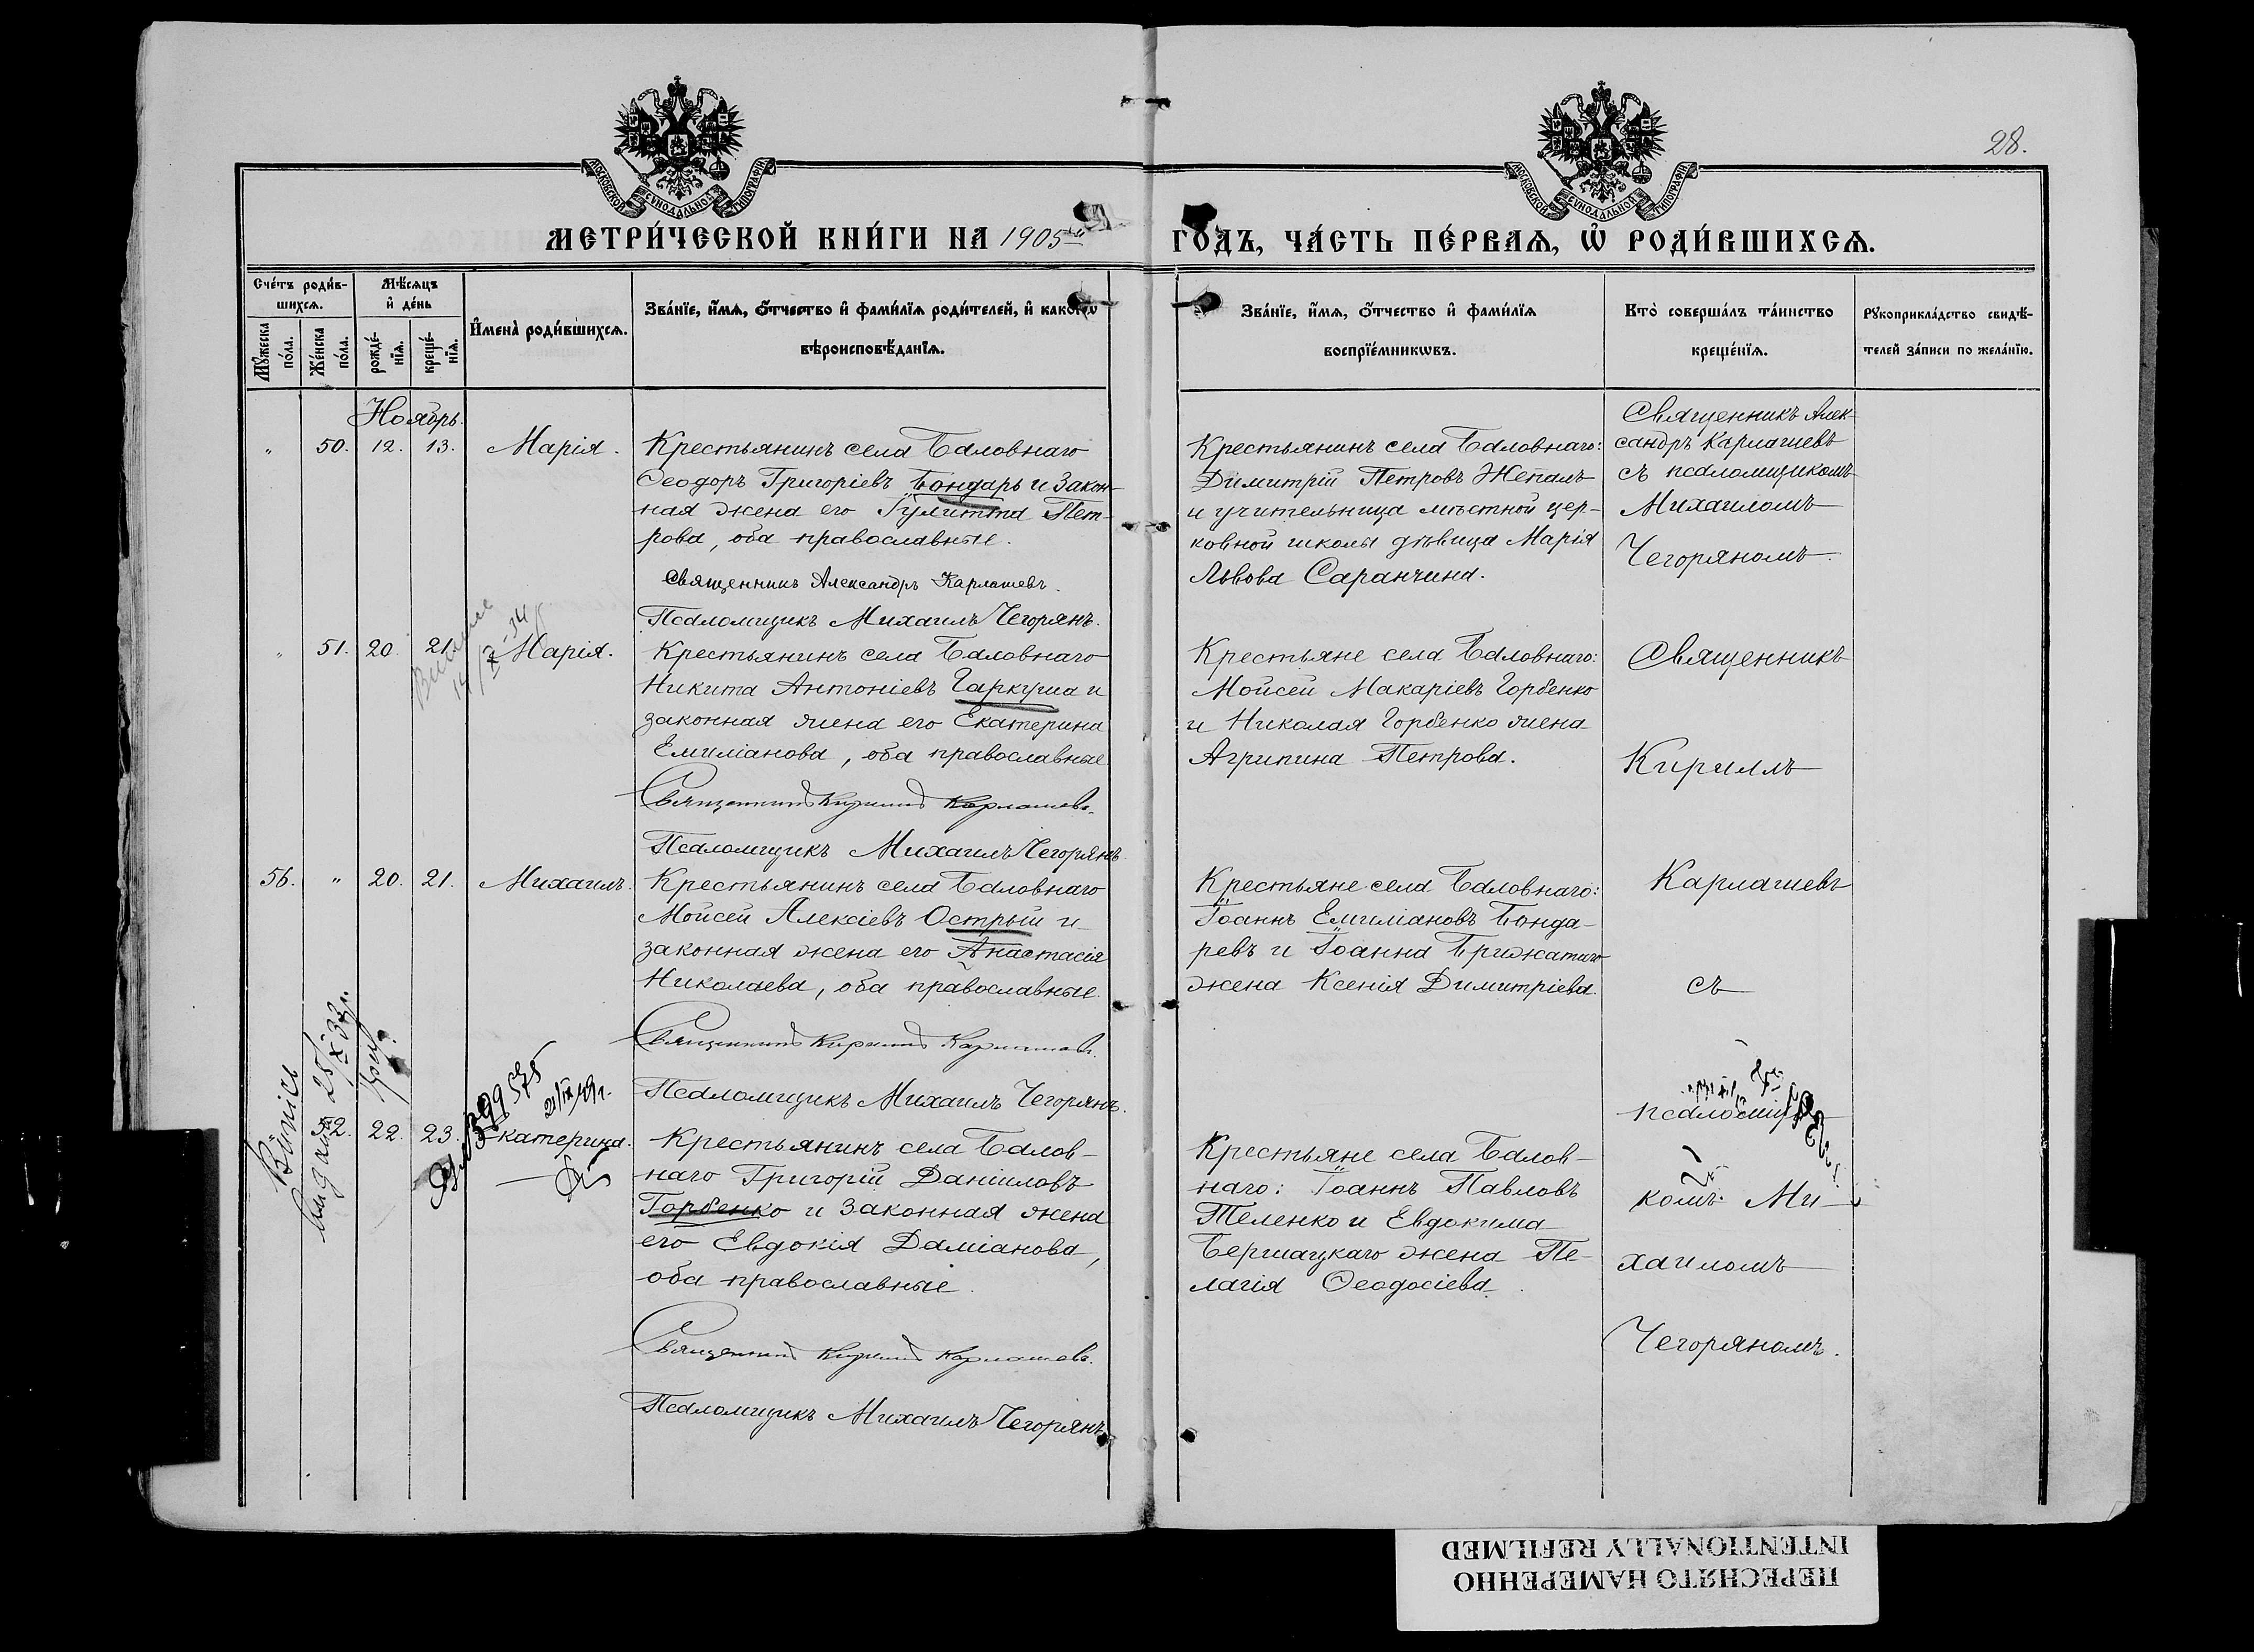 28.
МОСКОВСКОЙ СѴНОДАЛЬНОЙ ТИПОГРАФІИ
МОСКОВСКОЙ СѴНОДАЛЬНОЙ ТИПОГРАФІИ
МЕТРИ́ЧЕСКОЙ КНИ́ГИ НА 1905й ГО́ДЪ, ЧА́СТЬ ПЕ́РВАѦ, Ѽ РОДИ́ВШИХСѦ.
Сче́тъ роди́в-
шихсѧ.
Мѣ́сѧцъ
и҆ де́нь
Мꙋ́жеска по́ла.
Же́нска по́ла.
рожде́-
нїѧ.
креще́-
нїѧ.
И҆мена̀ роди́вшихсѧ.
Зва́нїе, и҆́мѧ, ѻ҆́тчество и҆ фами́лїѧ роди́телей, и҆ како́гѡ
вѣроисповѣ́данїѧ.
Зва́нїе, и҆́мѧ, ѻ҆́тчество и҆ фами́лїѧ
воспрїе́мникѡвъ.
Кто̀ соверша́лъ та́инство
креще́нїѧ.
Рꙋкоприкла́дство свидѣ́-
телей за́писи по жела́нїю.
Ноябрь.
" 50. 12. 13. Марія.
Крестьянинъ села Баловнаго
Ѳеодоръ Григоріевъ Бондарь и закон-
ная жена его Іулитта Пет-
рова, оба православные.
Священникъ Александръ Карлашевъ.
Псаломщикъ Михаилъ Чегорянъ.
Крестьянинъ села Баловнаго:
Димитрій Петровъ Жепалъ
и учительница мѣстной цер-
ковной школы дѣвица Марія
Львова Саранчина.
Священникъ Алек-
сандръ Карлашевъ
съ псаломщикомъ
Михаиломъ
Чегоряномъ.
" 51. 20. 21. Марія.
Крестьянинъ села Баловнаго
Никита Антоніевъ Гаркуша и
законная жена его Екатерина
Емиліанова, оба православные
Священникъ Кириллъ Карлашевъ.
Псаломщикъ Михаилъ Чегорянъ.
Крестьяне села Баловнаго:
Мойсей Макаріевъ Горбенко
и Николая Горбенко жена
Агрипина Петрова.
Священникъ
Кириллъ
56. " 20. 21. Михаилъ.
Крестьянинъ села Баловнаго
Мойсей Алексіевъ Острый и
законная жена его Анастасія
Николаева, оба православные.
Священникъ Кириллъ Карлашевъ.
Псаломщикъ Михаилъ Чегорянъ.
Крестьяне села Баловнаго:
Іоаннъ Емиліановъ Бонда-
ревъ и Іоанна Брижатаго
жена Ксенія Димитріева.
Карлашевъ
съ
52. 22. 23. Екатерина.
Крестьянинъ села Балов-
наго Григорій Даніиловъ
Горбенко и законная жена
его Евдокія Даміанова,
оба православные.
Священникъ Кириллъ Карлашевъ.
Псаломщикъ Михаилъ Чегорянъ
Крестьяне села Балов-
наго: Іоаннъ Павловъ
Теленко и Евдокима
Бершацкаго жена Пе-
лагія Ѳеодосіева.
псаломщи-
комъ Ми-
хаиломъ
Чегоряномъ.
ПЕРЕСНЯТО НАМЕРЕННО
INTENTIONALLY REFILMED